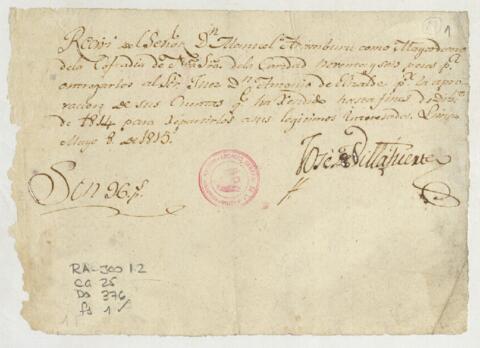 1
Recivi del Señor Dn Manuel Aramburu como Mayordomo
dela Cofradia de Nra Sra dela Caridad noventa y seis pesos pa
entregarlos al Sor Juez Dn Antonio de Elizalde pr la apro-
vacion de sus Cuentas qe ha rendido hasta fines de Dice
de 1814 para repartirlos asus legitimos Interesados. Lima
Mayo 8 de 1815.
José de Villafuerte
Son 96 ps
RA-J00 1.2
Ca 25
Do 376
fs 1